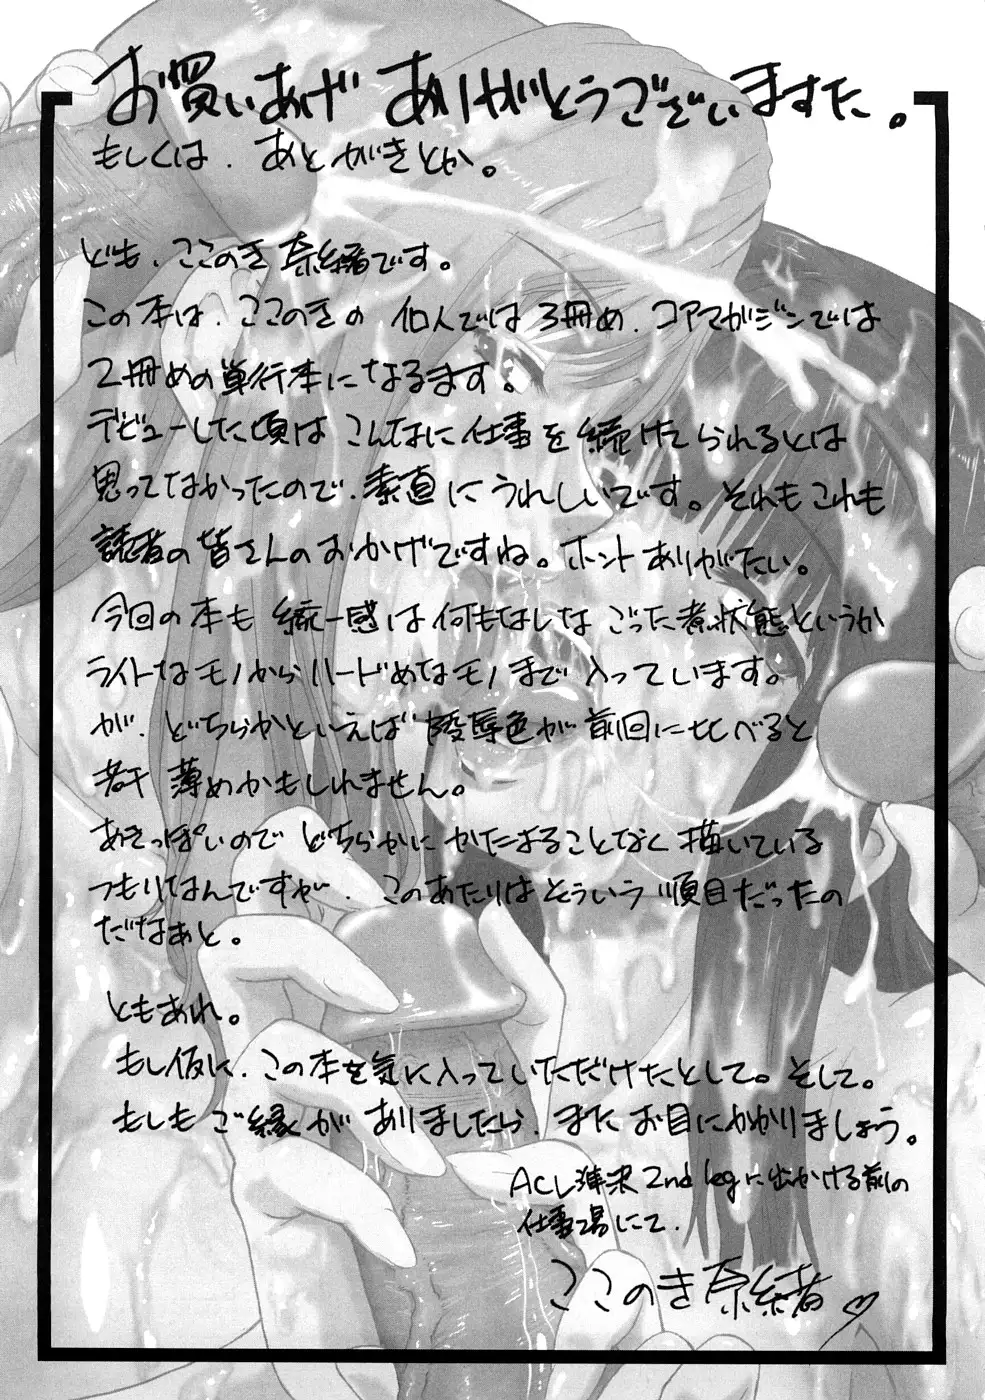 お買いあげ ありがとうございますた。
もしくは、あとがきとか。
ども、ここのき奈緒です。
この本は、ここのきの 個人では3冊め、コアマガジンでは
2冊めの単行本になるます。
デビューした頃は こんなに仕事を続けてられるとは
思ってなかったので、素直にうれしいです。それもこれも
読者の皆さんのおかげですね。ホント ありがたい。
今回の本も 統一感は何もはしな ごった煮状態というか
ライトなモノからハードめなモノまで 入っています。
が、どちらかといえば 陵辱色が前回に比べると
若干 薄めかもしれません。
あきっぽいので どちらかにかたまることなく描いている
つもりなんですが、このあたりはそういう順目だったの
だなぁと。
ともあれ。
もし仮に、この本を気に入っていただけたとして。そして。
もしもご縁がありましたら、またお目にかかりましょう。
ACL 2nd legに出かける前の
仕事場にて、
ここのき奈緒♡